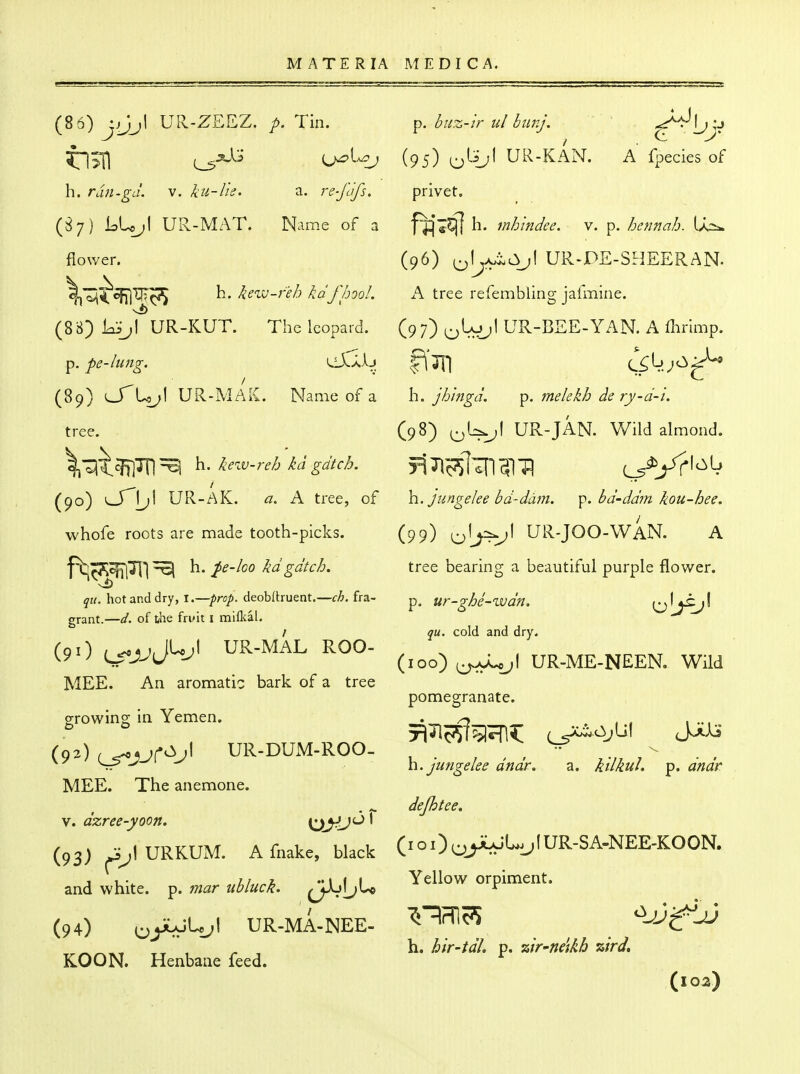 MATERIA MEDICA.
(86) ارزيز UR-ZEEZ. p. Tin.
राँगा قلعي رصاص
h. rán-gá. v. ku-lie. a. re-ſáſs.
(87) ارماط UR-MAT. Name of a
flower.
h. kew-reh ká ſhool.
(88) ارقط UR-KUT. The leopard.
p. pe-lung. پلنگ
(89) ارماك UR-MAK. Name of a
tree.
h. kew-reh ká gátch.
(90) اراك UR-AK. a. A tree, of
whoſe roots are made tooth-picks.
h. pe-loo ká gátch.
qu. hot and dry, 1.—prop. deobſtruent.—ch. fra-
grant.—d. of the fruit 1 miſkál.
(91) ارمالرومي UR-MÁL ROO-
MEE. An aromatic bark of a tree
growing in Yemen.
(92) اردمرومي UR-DUM-ROO-
MEE. The anemone.
v. ázree-yoon. آذريون
(93) ارقم URKUM. A ſnake, black
and white. p. mar ubluck. مارابلق
(94) ارمانيقون UR-MÁ-NEE-
KOON. Henbane ſeed.
p. buz-ir ul bunj. بزرالبنج
(95) ارقان UR-KÁN. A ſpecies of
privet.
h. mhindee. v. p. hennah. حنا
(96) اردشيران UR-DE-SHEERAN.
A tree reſembling jaſmine.
(97) اربيان UR-BEE-YAN. A ſhrimp.
h. jhingá. p. melekh de ry-á-i.
(98) ارجان UR-JÁN. Wild almond.
h. jungelee bá-dám. p. bá-dám kou-hee.
(99) ارجوان UR-JOO-WÁN. A
tree bearing a beautiful purple flower.
p. ur-ghé-wán. ارغوان
qu. cold and dry.
(100) ارمنين UR-ME-NEEN. Wild
pomegranate.
h. jungelee ánár. a. kilkul. p. ánár
deſhtee.
(101) ارسانيقون UR-SA-NEE-KOON.
Yellow orpiment.
h. hir-tál. p. zir-neikh zird.
(102)